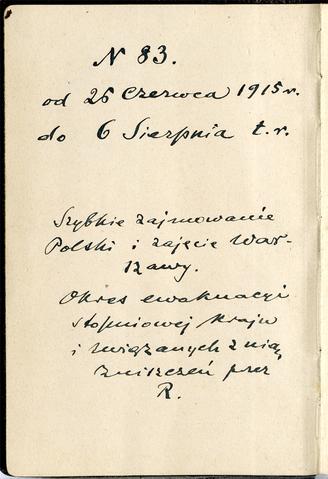 N 83.
od 26 Czerwca 1915 r.
do 6 Sierpnia t.r.
Szybkie zajmowanie
Polski i zajęcie War-
szawy.
Okres ewakuacyi
stopniowej kraju
i związanych z nią
zniszczeń przez
R.